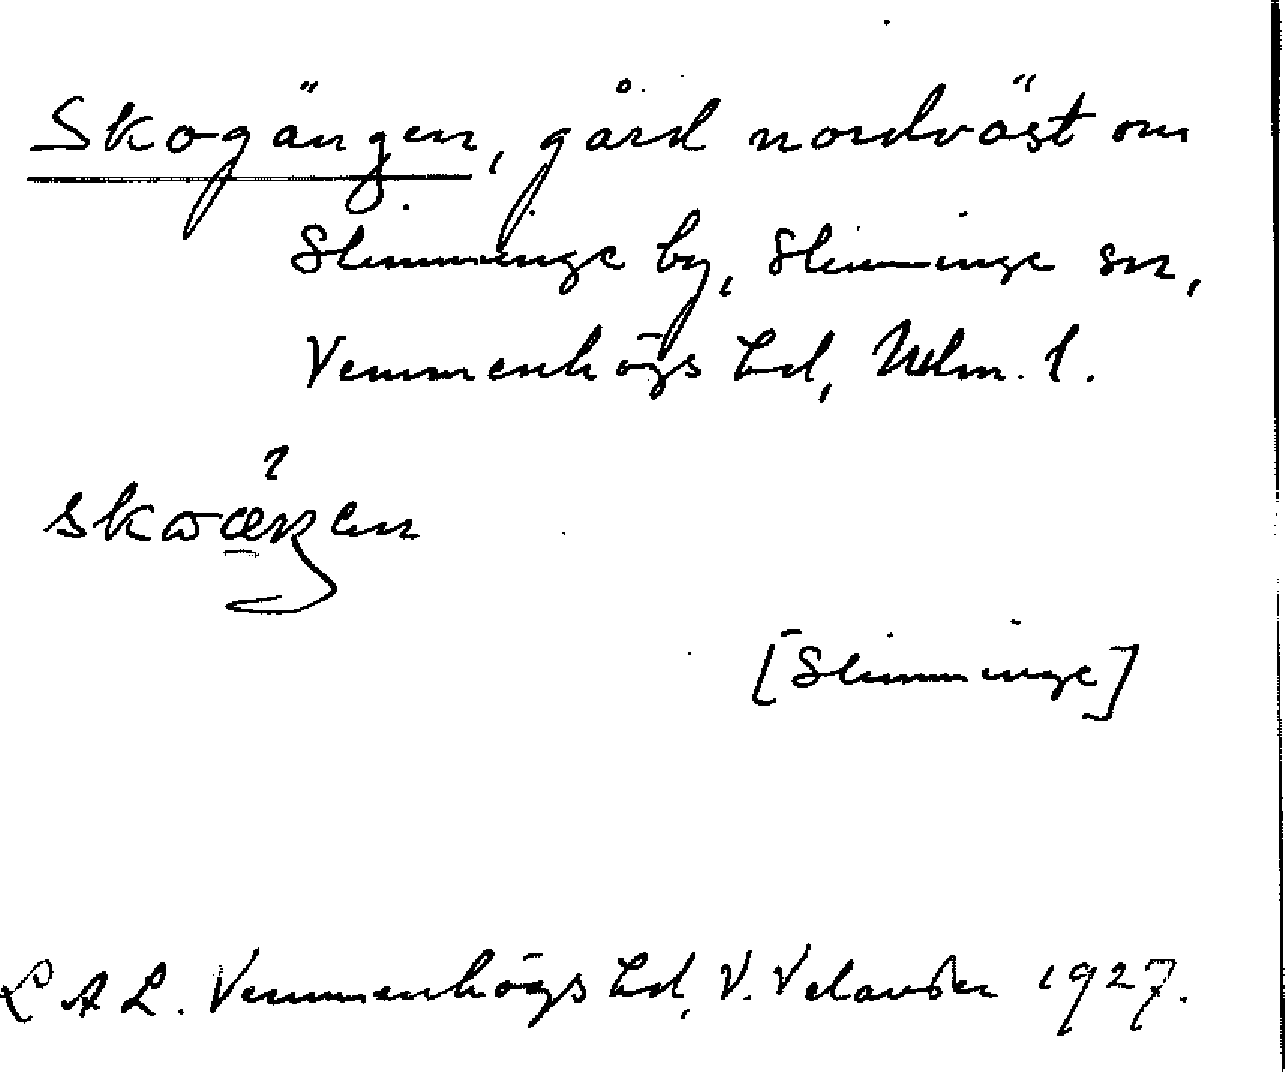 Skogängen, gård nordväst om
Slimminge by, Slimminge sn,
Vemmenhögs hd, Mlm. l.
[Slimminge]
L A L. Vemmenhögs hd, V. Velander 1927.